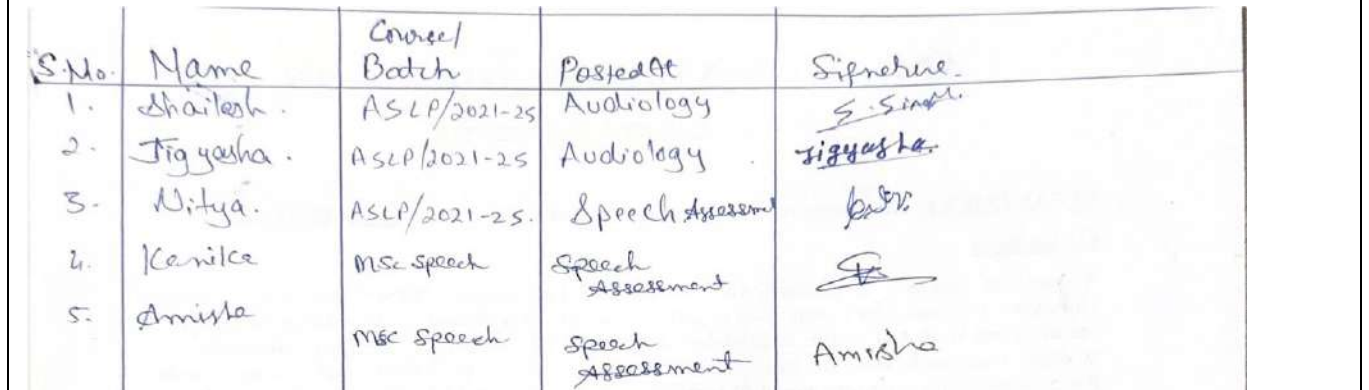 S.No. Name Course/ Batch Posted At Signature.
1. Shailesh. ASLP/2021-25 Audiology S. Singh.
2. Jigyasha. ASLP/2021-25 Audiology Jigyasha.
3. Nitya. ASLP/2021-25. Speech Assessment
4. Kanika MSc Speech Speech Assessment
5. Amisha MSc Speech Speech Assessment Amisha